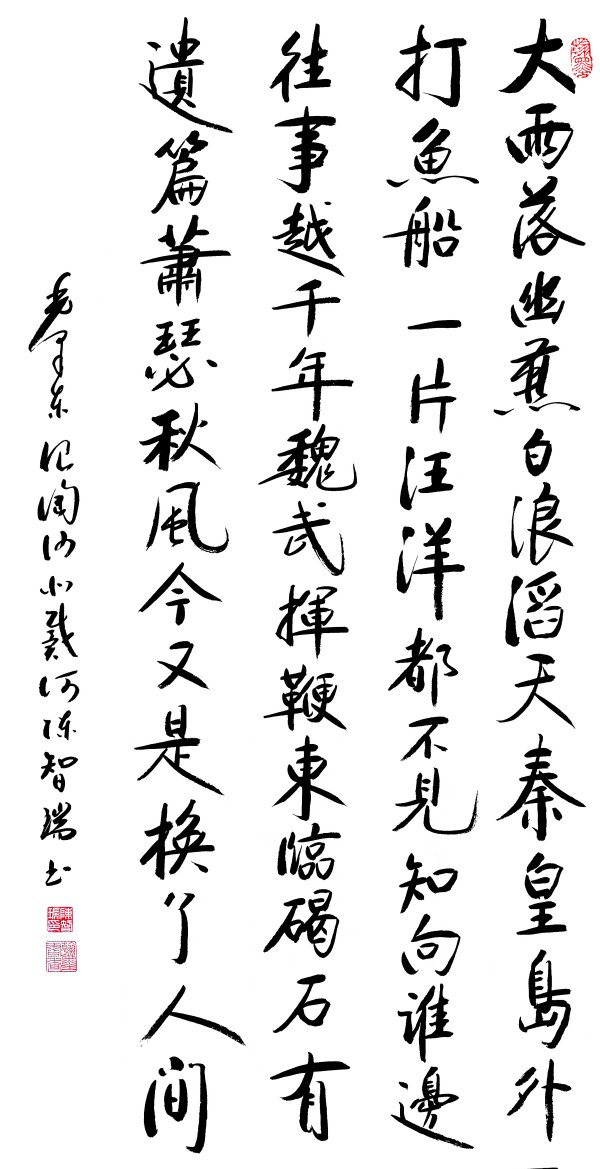 大雨落幽燕白浪滔天秦皇島外
打魚船一片汪洋都不見知向誰邊
往事越千年魏武揮鞭東臨碣石有
遺篇蕭瑟秋風今又是換了人間
毛泽东浪淘沙北戴河陈智瑞书